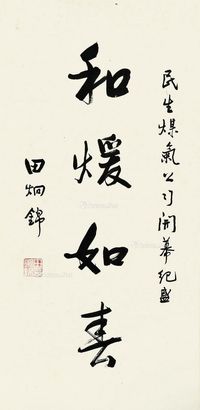 民生煤氣公司開幕紀盛
和煖如春
田炯錦